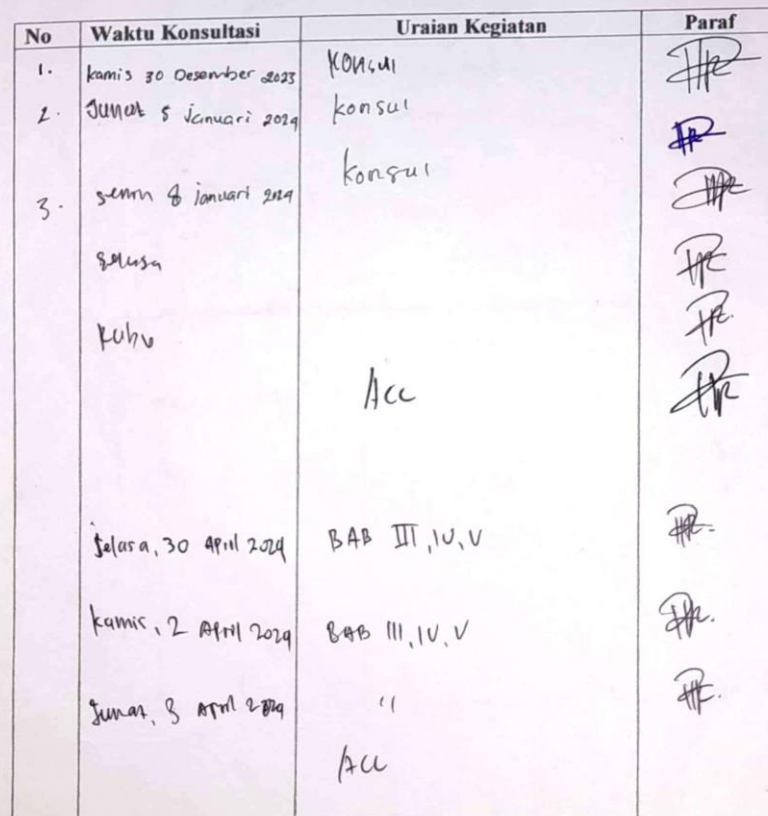 No Waktu Konsultasi Uraian Kegiatan Paraf
1. kamis 30 Desember 2023 Konsul
2. Jumat 5 januari 2024 konsul
konsul
3. senin 8 januari 2024
selasa
Rabu
Acc
Selasa, 30 April 2024 BAB III, IV, V
kamis, 2 April 2024 BAB III, IV, V
Jumat, 3 April 2024 "
Acc